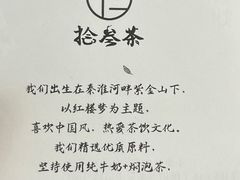 拾叁茶
我们出生在秦淮河畔紫金山下，
以红楼梦为主题，
喜欢中国风，热爱茶饮文化。
我们精选优质原料，
坚持使用纯牛奶+焖泡茶，